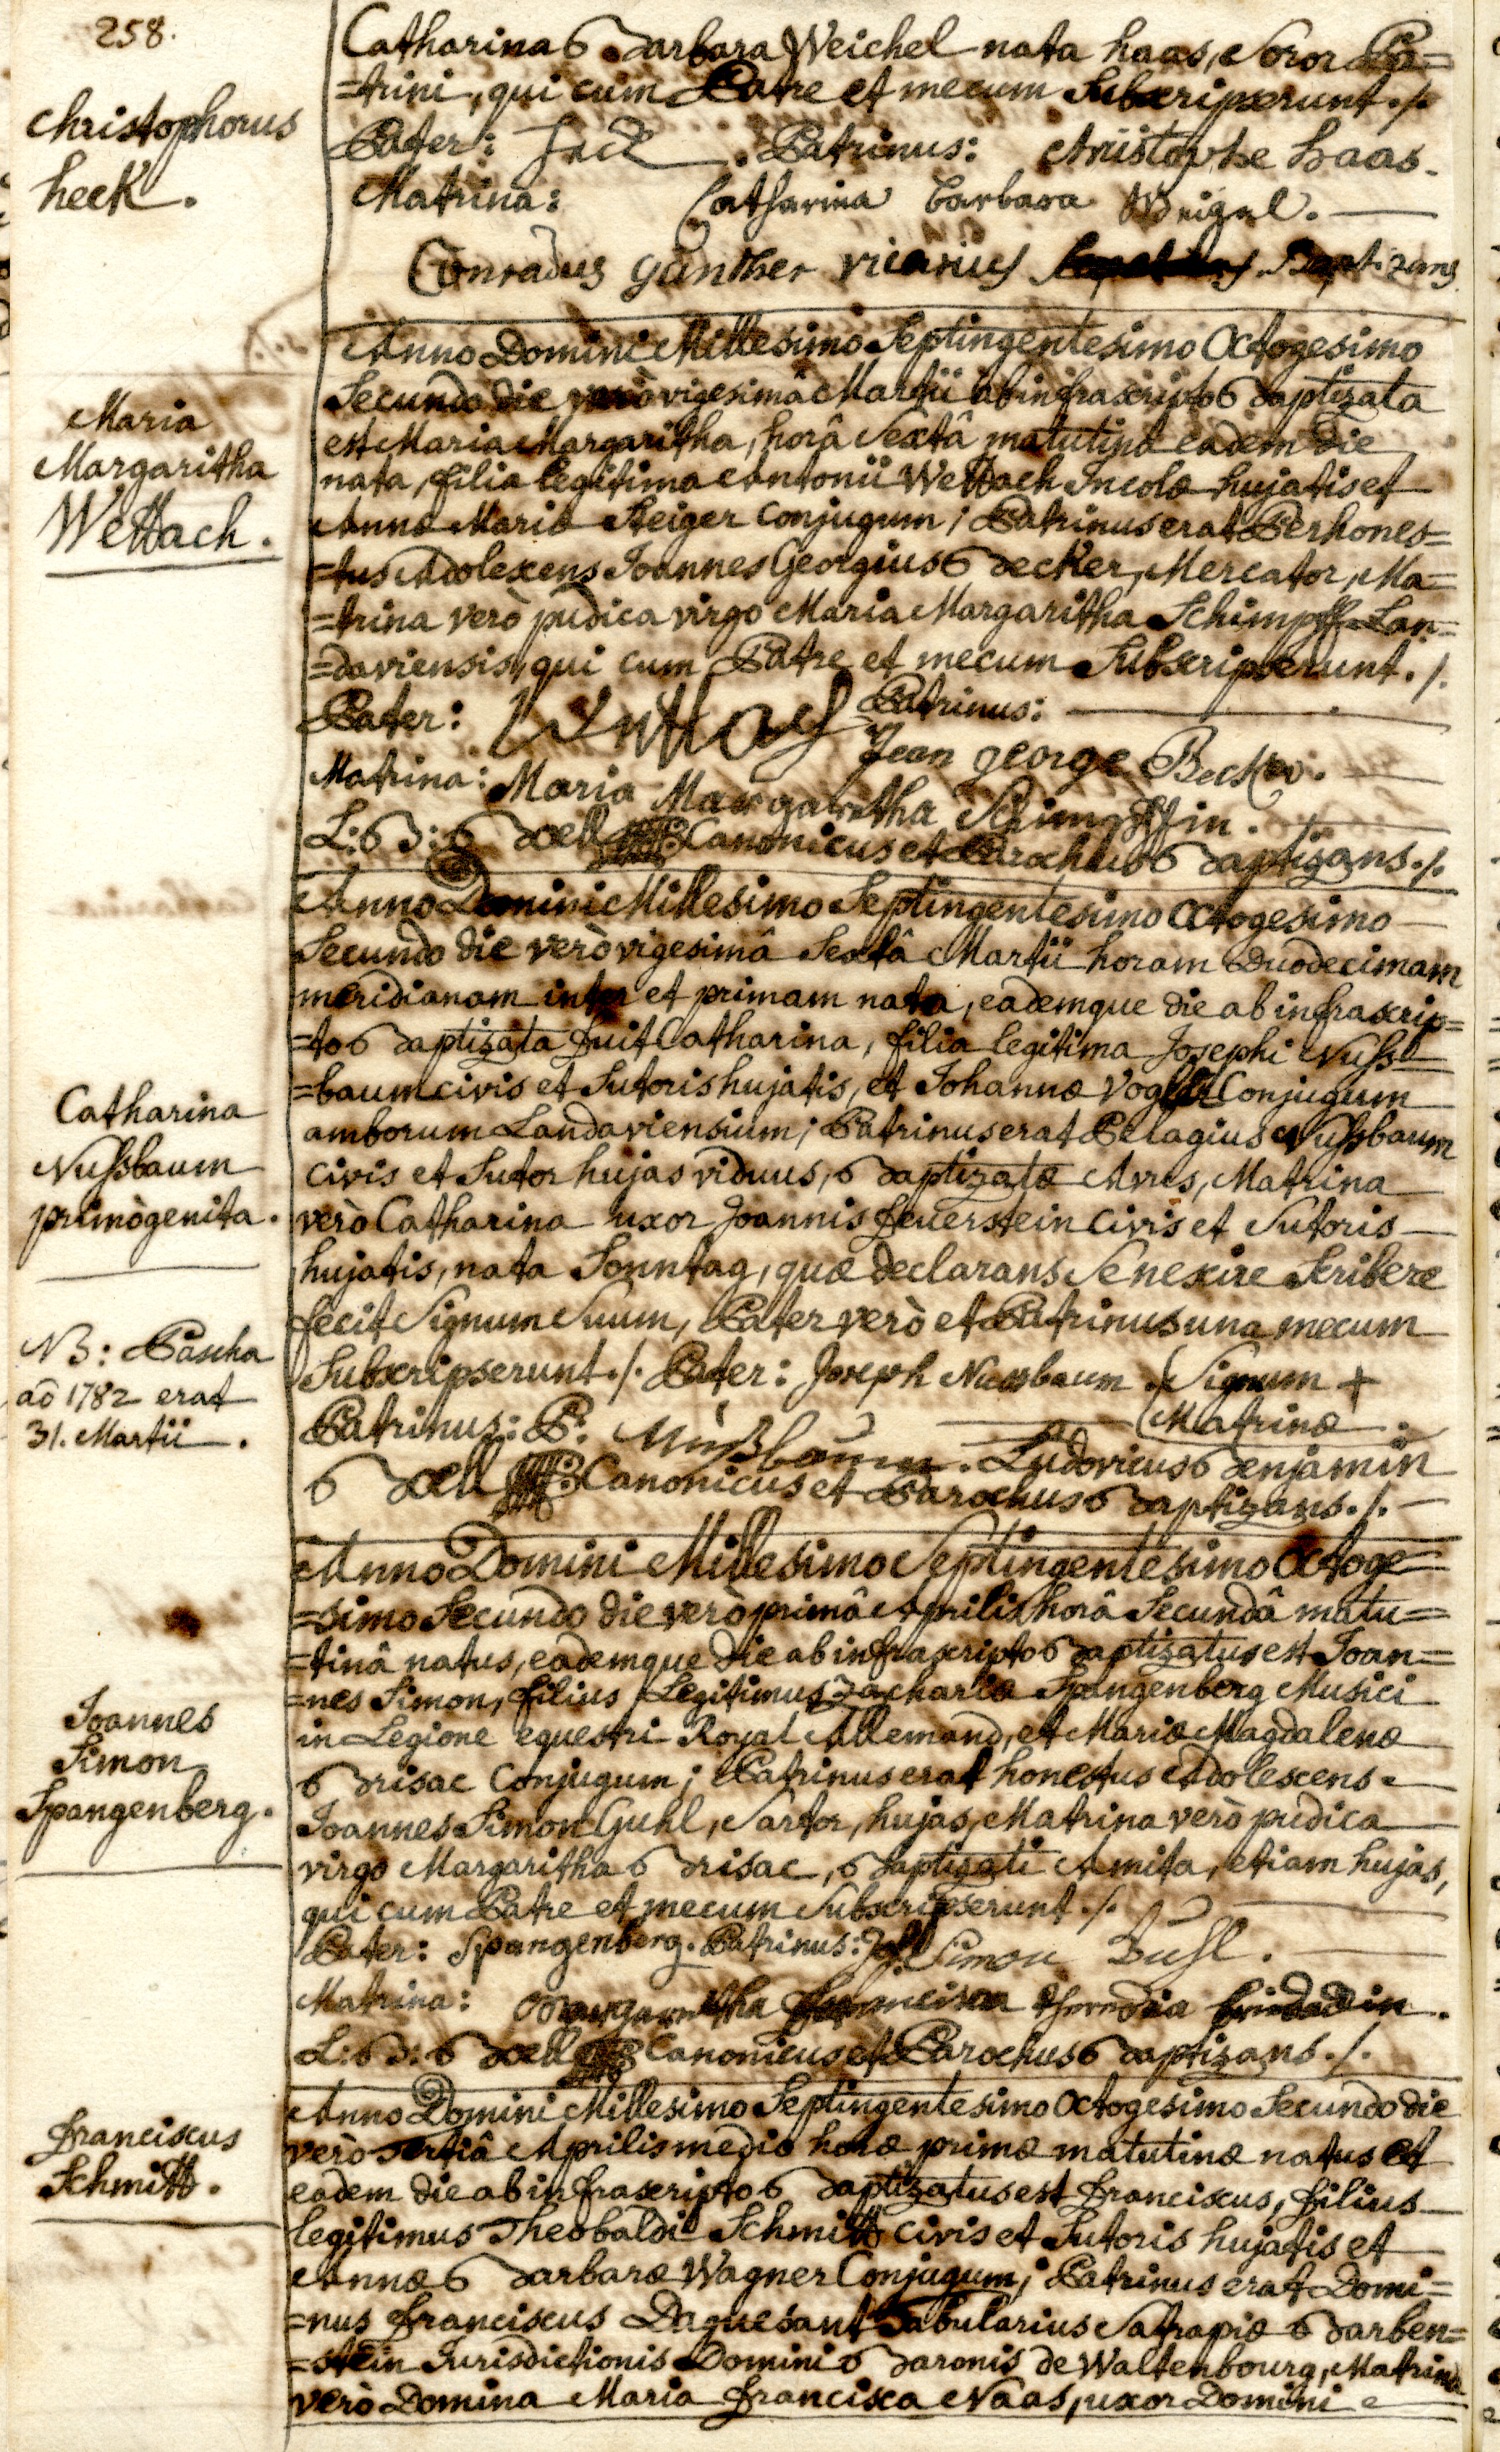 258.
Christophorus
heck.
Catharina Barbara Weichel nata haas, Soror Pa=
=trini, qui cum Patre et mecum Subscripserunt./.
Pater: heck. Patrinus: christophe haas.
Matrina: Catharina barbara Weigel.
Conradus günther vicarius Baptizans
Maria
Margaritha
Wettach.
Anno Domini Millesimo Septingentesimo Octogesimo
Secundo die verò vigesimâ Martii ab infrascripto Baptizata
est Maria Margaritha, horâ Sextâ matutinâ eadem die
nata, filia legitima Antonii Wettach Incolæ hujatis et
Annæ Mariæ Steiger Conjugum; Patrinus erat Perhones=
=tus Adolescens Joannes Georgius Becker, Mercator, Ma=
=trina verò pudica virgo Maria Margaritha Schimpff Lan=
=daviensis, qui cum Patre et mecum Subscripserunt./.
Pater: Wettach Patrinus:
Jean george Becker.
Matrina: Maria Margaretha Schimpffin.
L:B: Boell Canonicus et Parochus Baptizans./.
Catharina
Nußbaum
primògenita.
Anno Domini Millesimo Septingentesimo Octogesimo
Secundo die verò vigesimâ Sextâ Martii horam Duodecimam
meridianam inter et primam nata, eademque die ab infrascrip=
=to Baptizata fuit Catharina, filia legitima Josephi Nuß=
=baum civis et Sutoris hujatis, et Johannæ Vogler Conjugum
amborum Landaviensium; Patrinus erat Pelagius Nußbaum
civis et Sutor hujas viduus, Baptizatæ Avus, Matrina
verò Catharina uxor Joannis feuerstein civis et Sutoris
hujatis, nata Sonntag, quæ declarans Se nescire Scribere
fecit Signum Suum, Pater verò et Patrinus una mecum
Subscripserunt./. Pater: Joseph Nusbaum. Signum +
Matrinæ.
Patrinus: P: Nußbaum. Ludovicus Benjamin
Boell Canonicus et Parochus Baptizans./.
NB: Pascha
aô 1782 erat
31. Martii.
Joannes
Simon
Spangenberg.
Anno Domini Millesimo Septingentesimo Octoge=
=simo Secundo die verò primâ Aprilis horâ Secundâ matu=
=tinâ natus, eademque die ab infrascripto Baptizatus est Joan=
=nes Simon, filius Legitimus Zachariæ Spangenberg Musici
in Legione equestri Royal Allemand, et Mariæ Magdalenæ
Brisac Conjugum; Patrinus erat honestus Adolescens
Joannes Simon Guhl, Sartor, hujas, Matrina verò pudica
virgo Margaritha Brisac, Baptizati Amita, etiam hujas,
qui cum Patre et mecum Subscripserunt./.
Pater: Spangenberg. Patrinus: Joh. Simon Guhl.
Matrina: Margaretha
L:B: Boell Canonicus et Parochus Baptizans./.
franciscus
Schmitt.
Anno Domini Millesimo Septingentesimo Octogesimo Secundo die
verò Tertiâ Aprilis mediâ horæ primæ matutinæ natus et
eadem die ab infrascripto Baptizatus est franciscus, filius
legitimus Theobaldi Schmitt civis et Sutoris hujatis et
Annæ Barbaræ Wagner Conjugum; Patrinus erat Domi=
=nus franciscus Daguesant Tabularius Satrapiæ Barben=
=stein Jurisdictionis Domini Baronis de Waltenbourg, Matrina
verò Domina Maria francisca Naas, uxor Domini